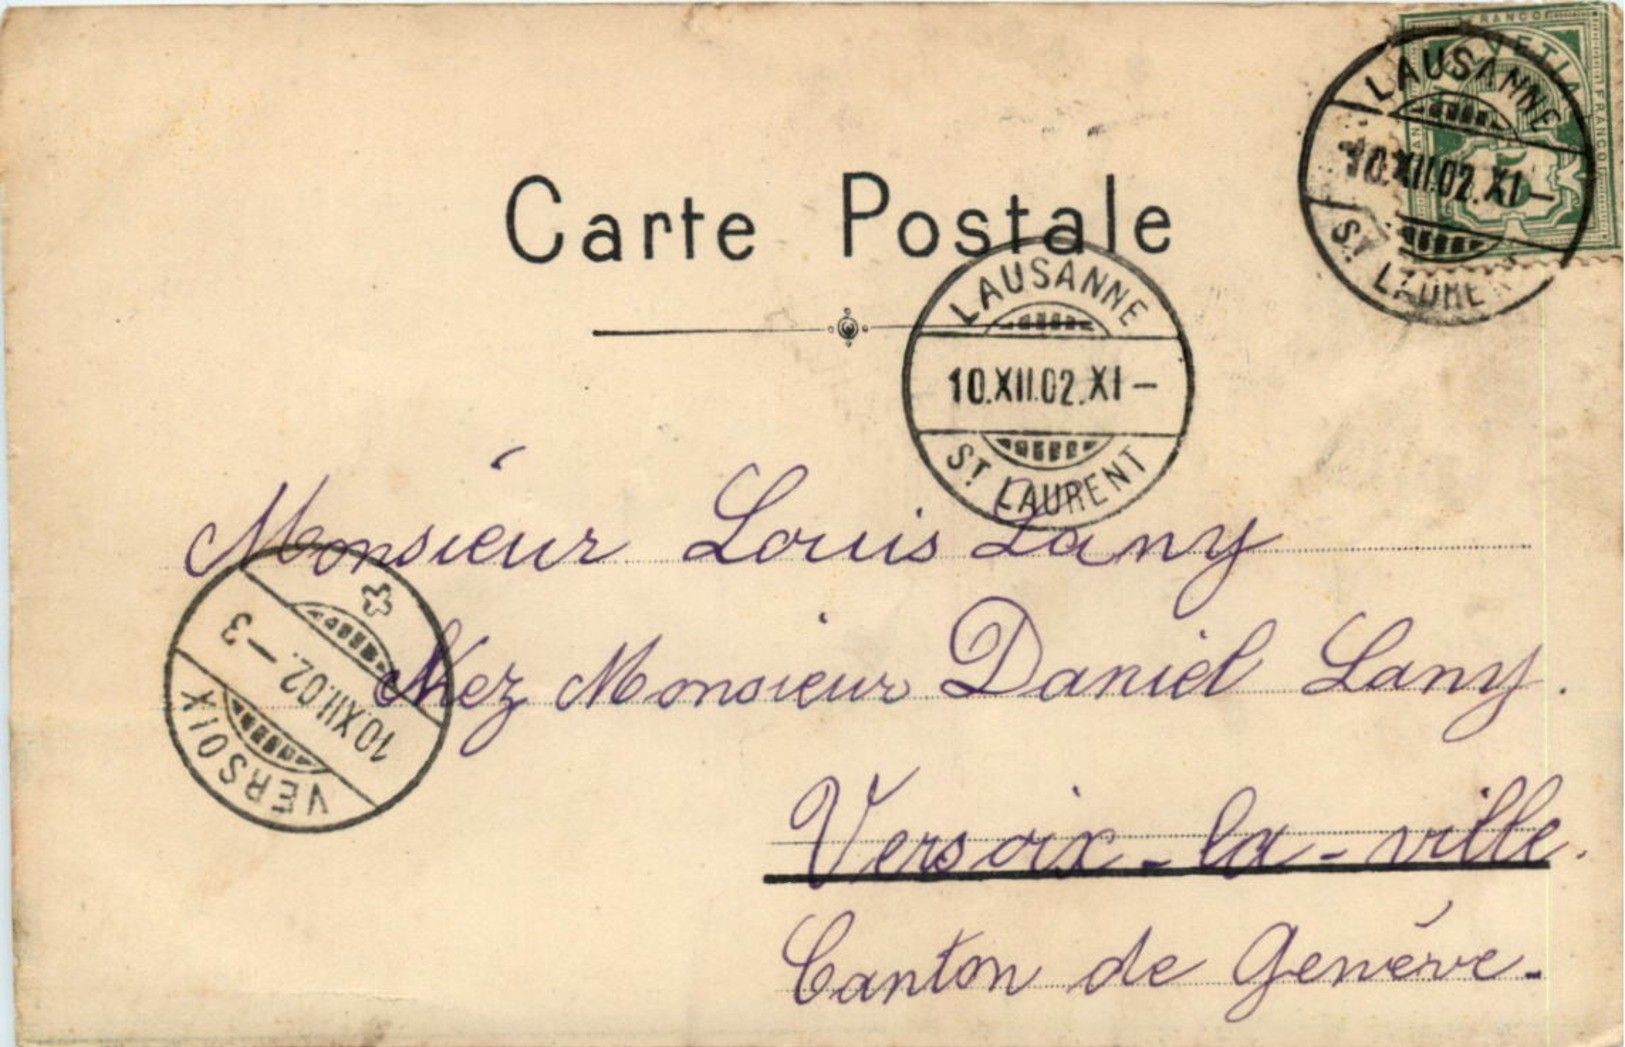 FRANCO
HELVETIA
FRANCO
LAUSANNE
10.XII.02.XI–
ST LAURENT
5
Carte Postale
LAUSANNE
10.XII.02.XI–
ST LAURENT
Monsieur Louis Lany
Chez Monsieur Daniel Lany.
Versoix-la-ville.
Canton de Genève.
10 XII.02.–3
VERSOIX